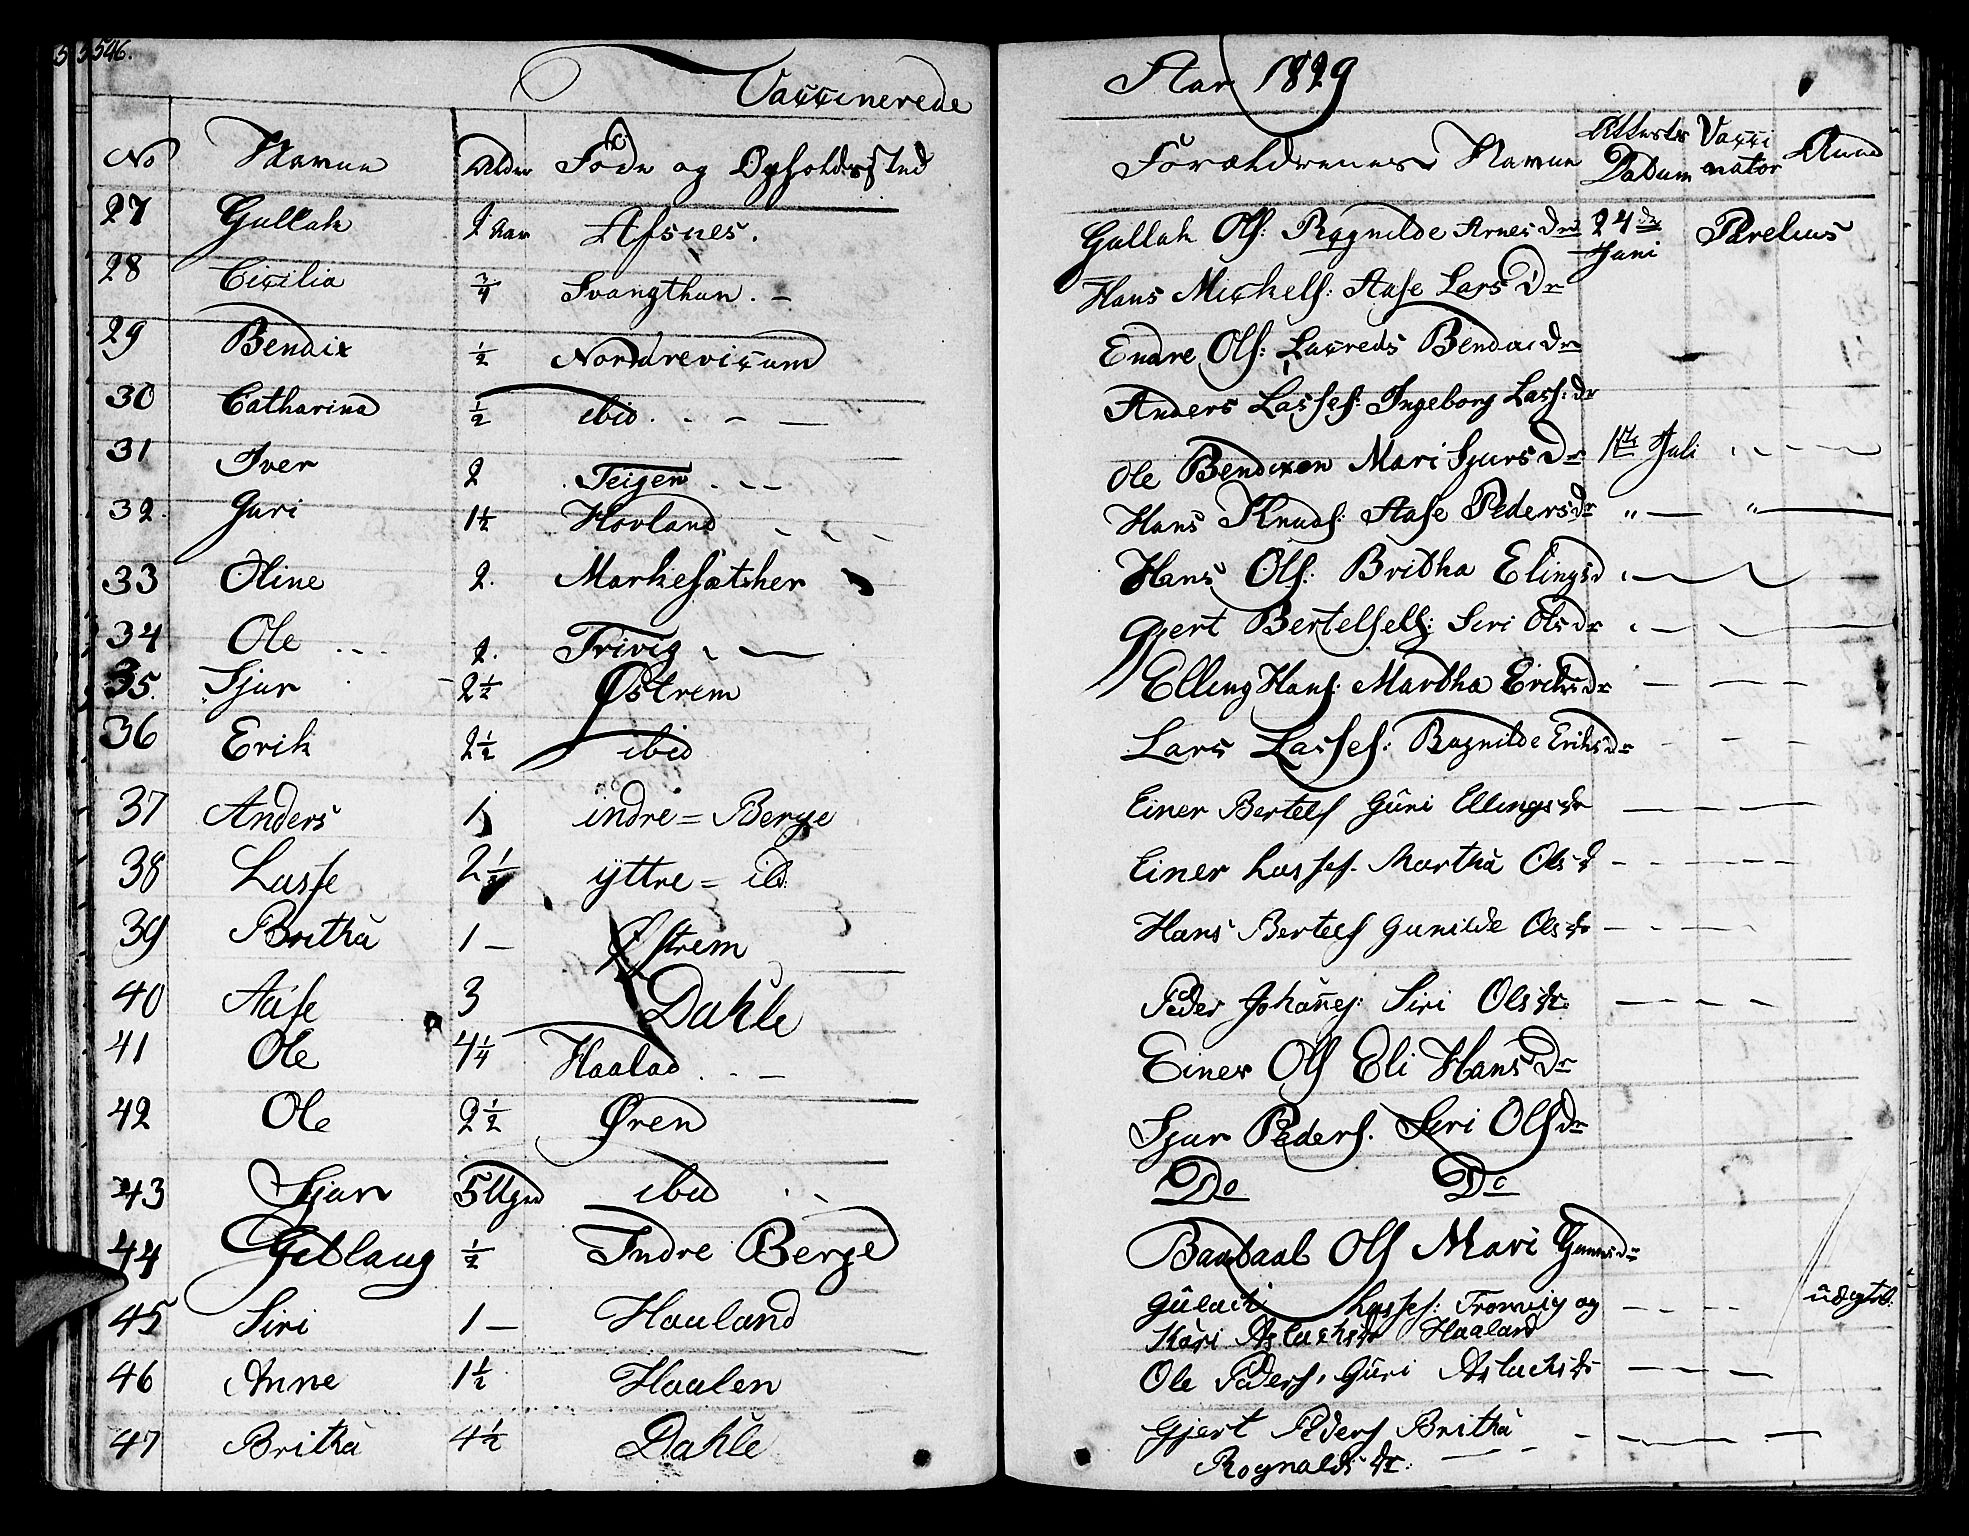 546.
Vaccinerede Aar 1829
No Navne Alder Føde og Opholdssted Forældrenes Navne Attestes Datum Vacci nator Anm
27 Gullak 2 Aar Afsnes. Gullak Ols: Ragnilde Arnes Dr 24de Juni Parelius
28 Cicilia 3/4 Svangthun. - Hans Mickels: Aase Lars Dr
29 Bendix 1/2 Nordrevicum Endre Ols: Lacreds Bendix Dr
30 Catharina 1/2 ibid. - - - Anders Lasses: Ingeborg Lass: dr
31 Iver 2 Teigen. - - Ole Bendixen Mari Sjurs Dr 1ste Juli
32. Guri 1 1/2 Hovland Hans Knuds: Aase Peders Dr " — " —
33 Oline 2. Markesætther Hans Ols: Britha Elingsd
34 Ole 2. Trivig Gjert Bertelsels: Siri Ols dr
35. Sjur 2 1/2 Østrem Elling Hans: Martha Eriks dr
36 Erik 2 1/2 ibid Lars Lasses: Ragnilde Eriks dr
37 Anders 1 indre = Berge Einer Bertels Guri Ellings dr
38 Lasse 2 1/2 yttre = id: Einer Lasses. Martha Ols d
39 Britha 1 - Østrem Hans Bertels Gunilde Ols dr
40 Aase 3 Dahle Peder Johannes: Siri Ols dr.
41 Ole 4 1/4 Haalad. - - Einer Ols Eli Hans Dr
42 Ole 2 1/2 Øren Sjur Peders. Siri Ols dr
43 Sjur 5 Ugr ibid Do Do
44 Gitlaug 1/2 Indre Berge Baabaal Ols Mari Gunnsdr
45 Siri 1 - Haaland Gulack Lasses: Tronvig og
Kari Aslachsdr Haaland
46 Anne 1 1/2 Haalen Ole Peders, Guri Aslachsdr
47 Britha 4 1/2 Dahle Gjert Peders Britha
Rognalds dr.